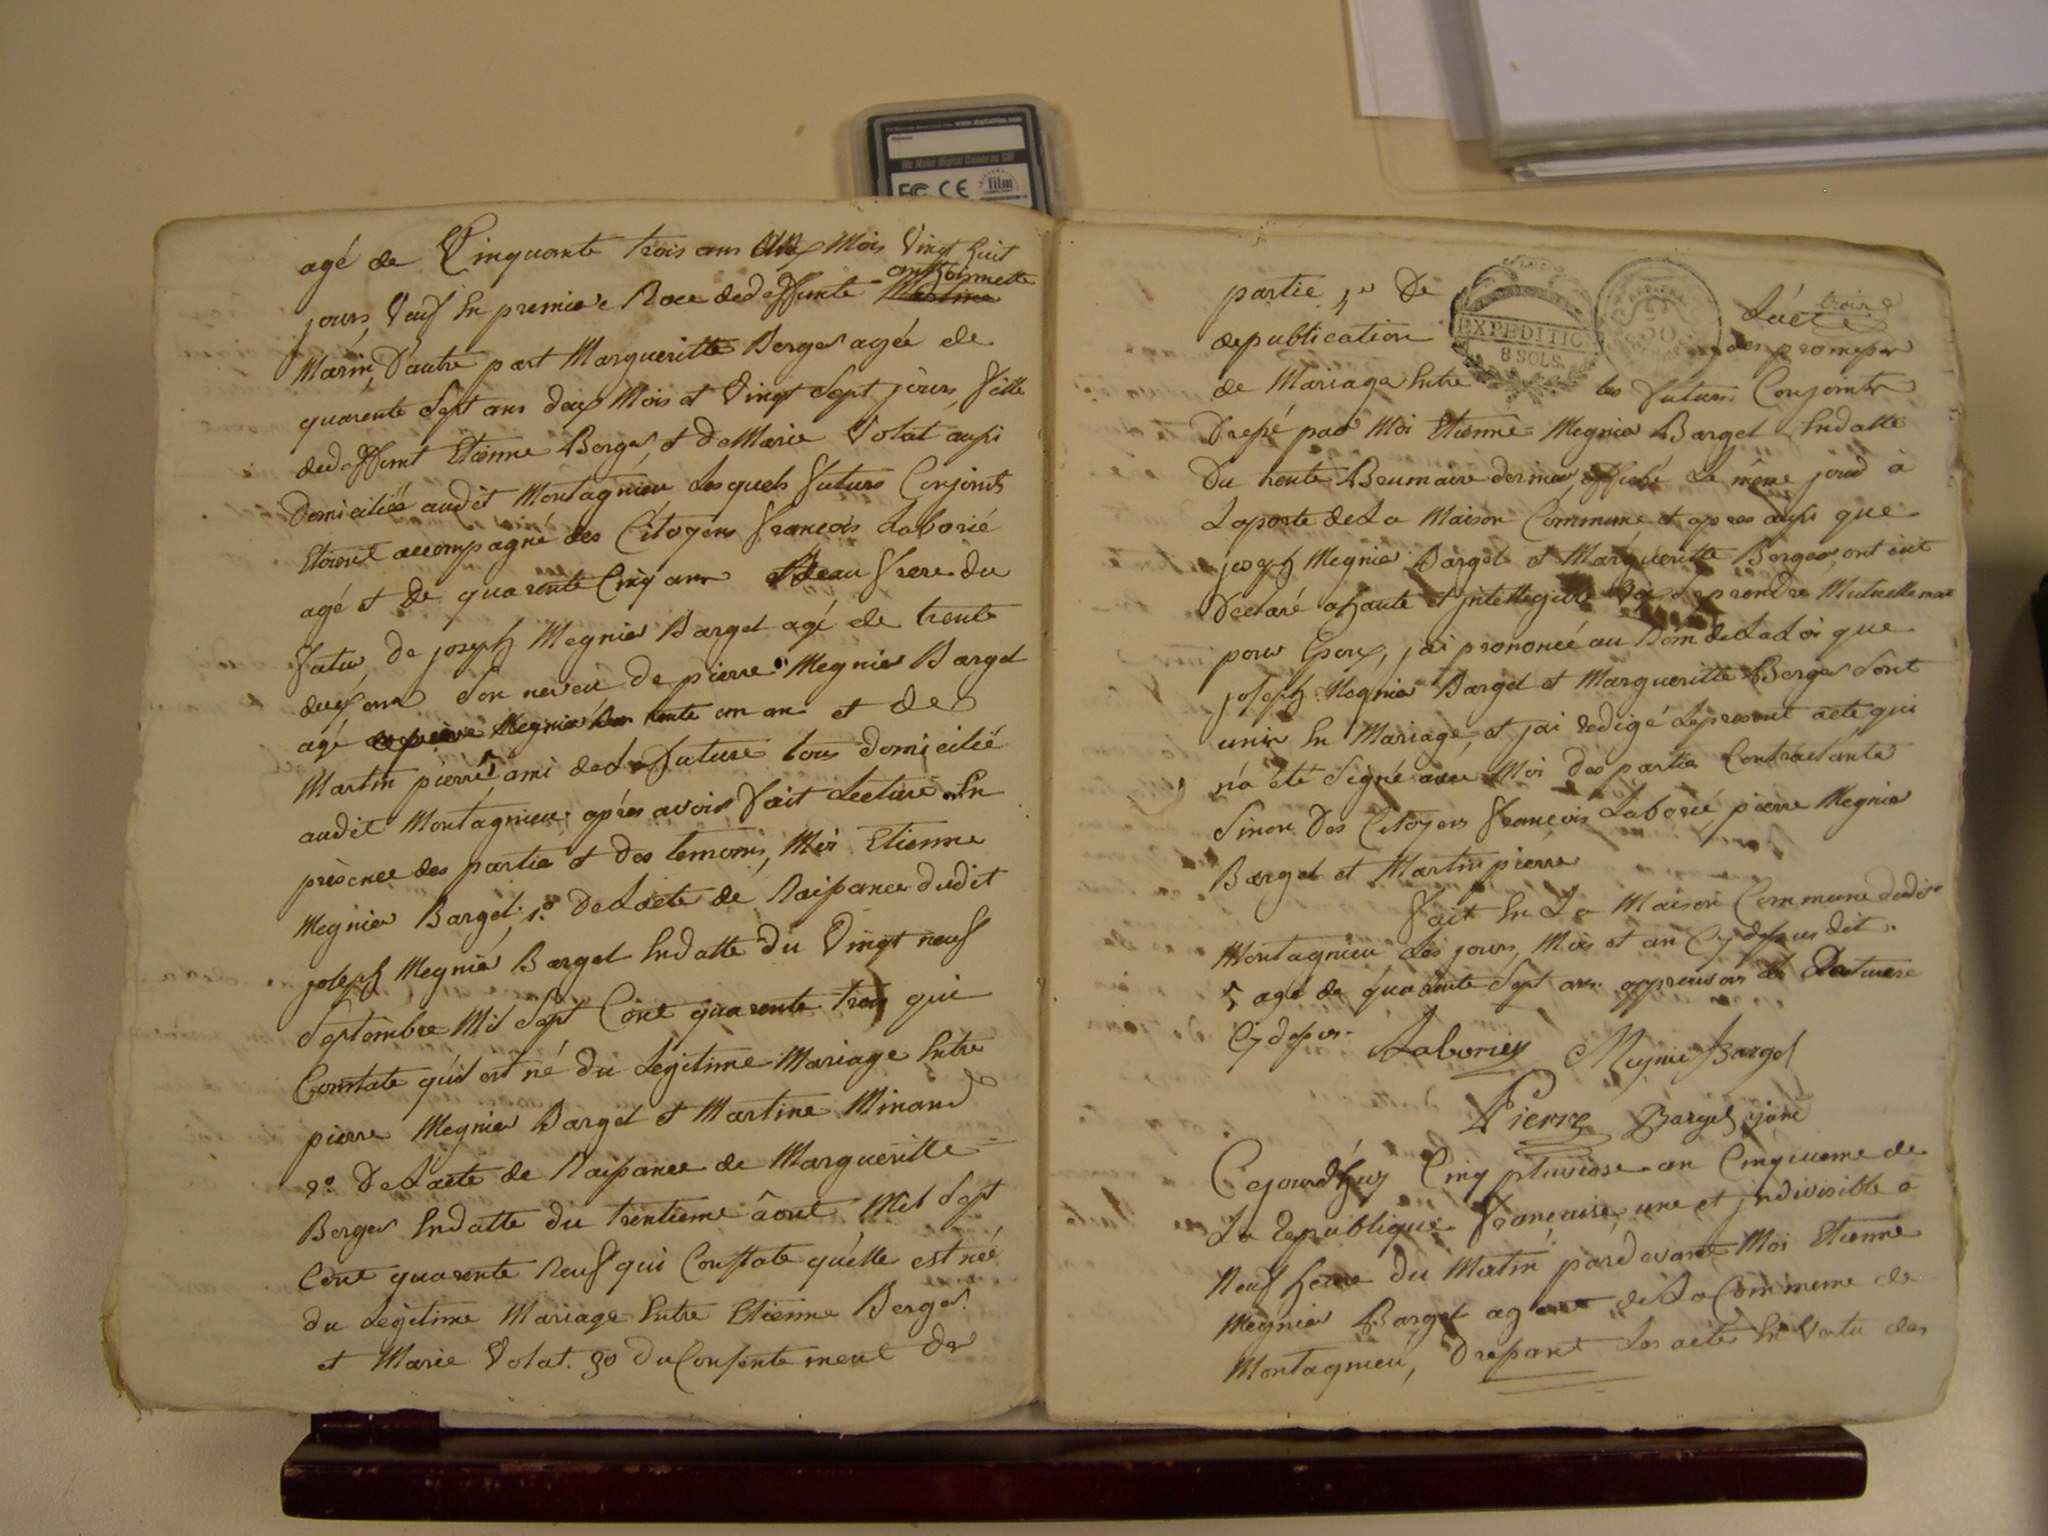 We Make Digital Cameras GO!
FC CE film
agé de Cinquante trois ans deux Mois Vingt huit
anthoinnette
jours, Veuf En premiere Noce dedeffunte Martine
Marin, D'autre part Margueritte Berger agée de
quarente Sept ans deux Mois et Vingt Sept jours, fille
dedeffunt Etienne Berger, et deMarie Volat aussi
Domiciliés audit Montagnieu Lesquels futurs Conjoints
Etoient accompagné des Citoyens françois Laborié
agé et De quarente Cinq ans Beau frere du
futur, de joseph Megnier Bargel agé de trente
deux ans Son neveu de pierre Megnier Bargel
agé de pierre Megnier trente un an et de
Martin pierre, ami deLa future tous domicilié
audit Montagnieu après avoir fait Lecture En
présence des partie et des temoins, Moi Etienne
Megnier Bargel, 1.° DeLacte de Naissance dudit
joseph Megnié Bargel Endatte du Vingt neuf
Septembre Mil Sept Cent quarente trois qui
Constate quil est né du Légitime Mariage Entre
pierre Megnier Bargel et Martine Minand
2.° DeLacte de Naissance de Margueritte
Berger Endatte du trentieme âout Mil Sept
Cent quarente Neuf qui Constate quélle est née
du Légitime Mariage Entre Etienne Berger
et Marie Volat. 3o du Consentement des
partie, De Lácte
trois
EXPEDITION
8 SOLS
50
depublication des promesses
de Mariage Entre les futurs Conjoints
Dressé par Moi Etienne Megnier Bargel Endatte
Du trente Brumaire dernier, affiché Le même jour à
Laporte deLa Maison Commune et apres aussi que
joseph Megnier Bargel et Margueritte Berger ont eut
Déclaré ahaute et jntellegible Voix Seprendre Mutuellement
pour Epoux, jai prononcé au Nom deLaLoi que
joseph Megnier Bargel et Margueritte Berger Sont
unis En Mariage, et jai redigé Lepresent acte qui
n'a été Signé avec Moi Des partie Contractante
Sinon Des Citoyens françois Laborié pierre Megnier
Bargel et Martin pierre
fait En La Maison Commune dudit
Montagnieu Les jours, Mois et an Cy dessus dit.
agé de quarante Sept ans approuvons La Rature
Cy dessus.
Laboriey Megnie Bargel
Pierre Bargel
Cejourd'huy Cinq pluviose an Cinquieme de
La republique française, une et jndivisible a
Neuf heure du Matin pardevant Moi Etienne
Megnier Bargel agent deLa Commune de
Montagnieu, Dressant Les actes En Vertu des